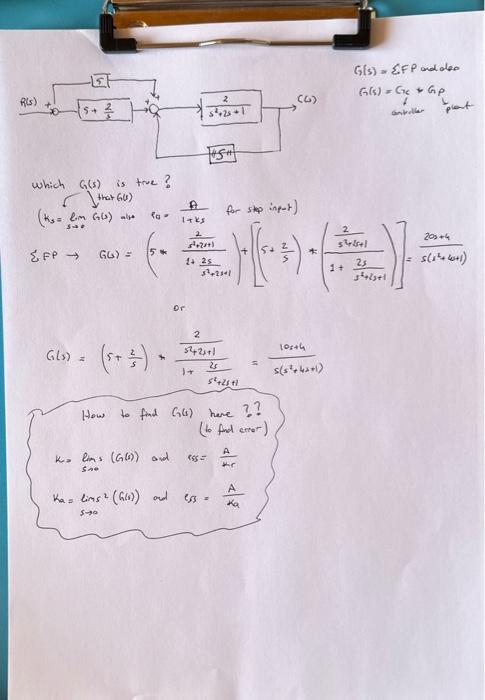 G(s) = ΣFP and also
G(s) = Gc * Gp
controller plant
R(s) + 5 + + 5 + 2/s - 2/(s²+2s+1) C(s)
"s"
which G(s) is true?
that G(s)
(Ks = lim s→0 G(s) also e0 = A/(1+Ks) for step input)
ΣFP → G(s) = (5 * (2/(s²+2s+1))/(1 + 2s/(s²+2s+1))) + [(5 + 2/s) * ((2/(s²+2s+1))/(1 + 2s/(s²+2s+1)))] = (20s+4)/(s(s²+4s+1))
or
G(s) = (5 + 2/s) * (2/(s²+2s+1))/(1 + 2s/(s²+2s+1)) = (10s+4)/(s(s²+4s+1))
How to find G(s) here ??
(to find error)
lim s (G(s)) s→0 and ess = A/Kr
Ka = lim s² (G(s)) s→0 and ess = A/Ka